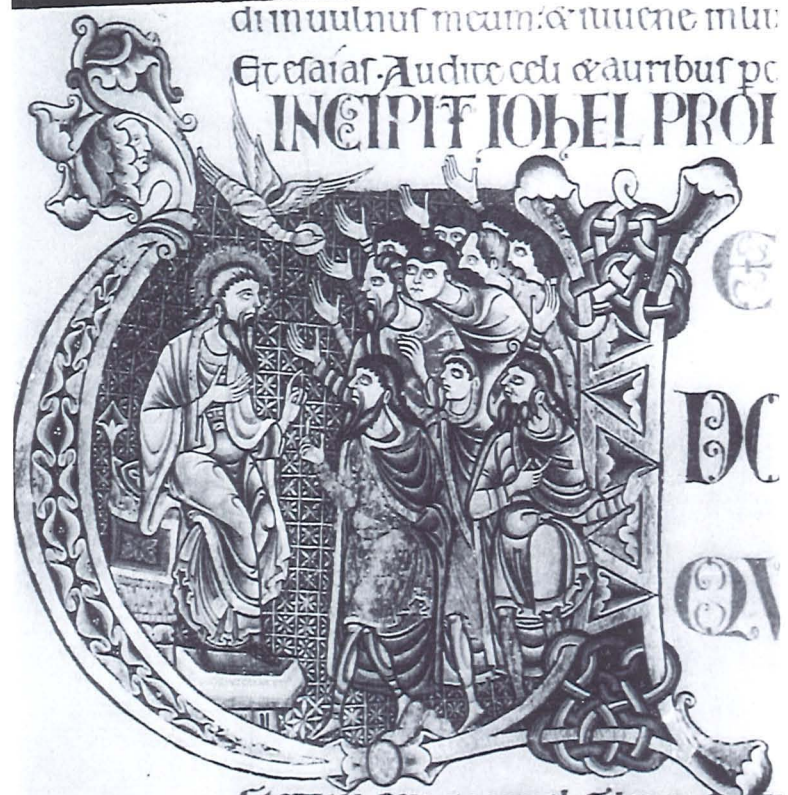 di in uulnus meum: & inuene in liu
Et esaias. Audite celi & auribus pc
INCIPIT IOhEL PROP
E
DO
QV